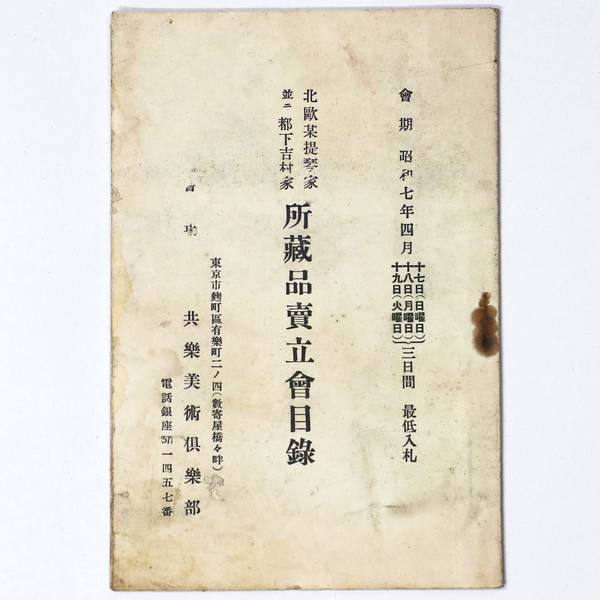 會期 昭和七年四月
十七日(日曜日)
十八日(月曜日)
十九日(火曜日)
三日間 最低入札
北歐某提琴家
並ニ 都下吉村家
所藏品賣立會目錄
東京市麴町區有樂町二ノ四(數寄屋橋々畔)
會場 共樂美術俱樂部
電話銀座(57)一四五七番